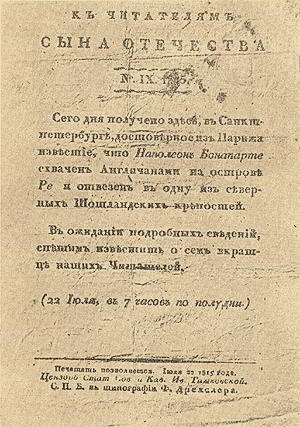 КЪ ЧИТАТЕЛЯМЪ
СЫНА ОТЕЧЕСТВА
N. IX
Сего дня получено здѣсь, въ Санкт-
петербургѣ, достовѣрное изъ Парижа
извѣстіе, что Наполеонъ Бонапарте
схваченъ Англичанами на островѣ
Ре и отвезенъ въ одну изъ сѣвер-
ныхъ Шотландскихъ крѣпостей.
Въ ожиданіи подробныхъ свѣденій,
спѣшимъ извѣстить о семъ вкрат-
цѣ нашихъ Читателей.
(22 Іюля, въ 7 часовъ по полудни.)
Печатать позволяется. Іюля 22 1815 года.
Цензоръ Стат Сов и Кав. Ив. Тимковской.
С. П. Б. въ типографіи Ф. Дрехслера.